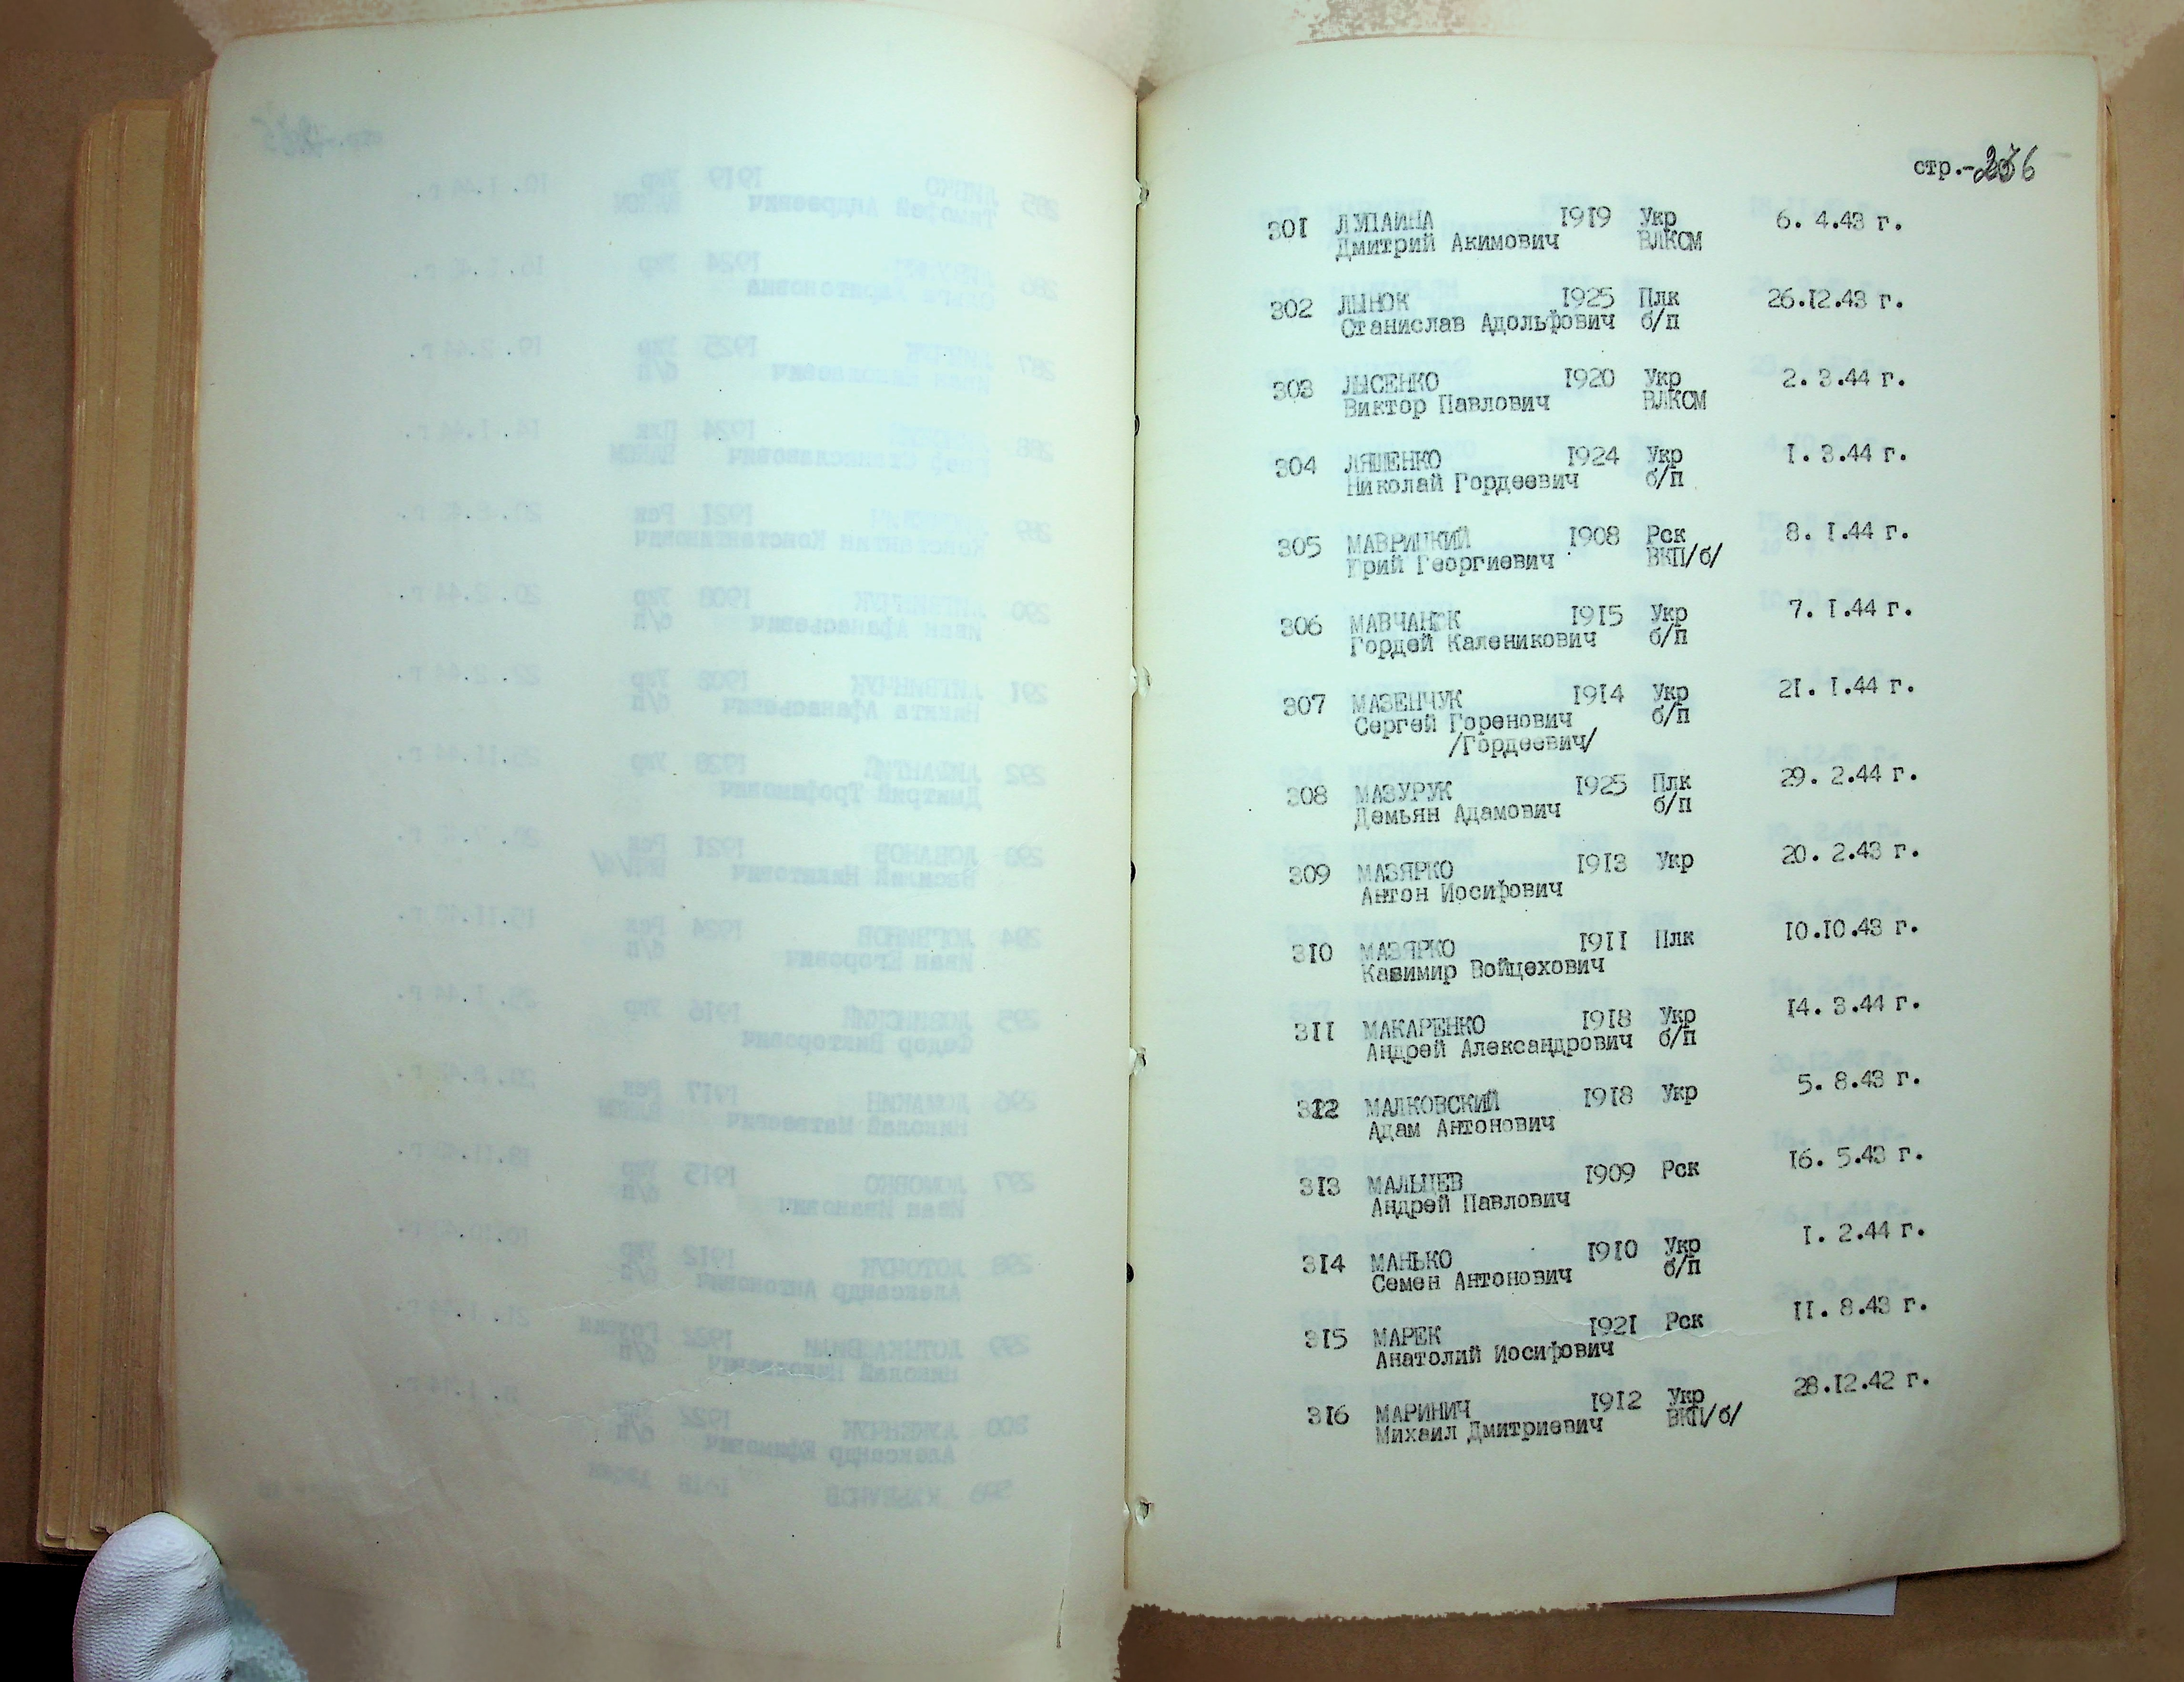 стр.-236
301 ЛУПАИНА 1919 Укр 6. 4.43 г.
Дмитрий Акимович ВЛКСМ
302 ЛЫНОК 1925 Плк 26.12.43 г.
Станислав Адольфович б/п
303 ЛЫСЕНКО 1920 Укр 2. 3.44 г.
Виктор Павлович ВЛКСМ
304 ЛЯШЕНКО 1924 Укр 1. 3.44 г.
Николай Гордеевич б/п
305 МАВРИЦКИЙ 1908 Рск 8. 1.44 г.
Юрий Георгиевич ВКП/б/
306 1915 Укр 7. 1.44 г.
Гордей Каленикович б/п
307 МАЗЕНЧУК 1914 Укр 21. 1.44 г.
Сергей Горенович б/п
/Гордеевич/
308 МАЗУРУК 1925 Плк 29. 2.44 г.
Демьян Адамович б/п
309 МАЗЯРКО 1913 Укр 20. 2.43 г.
Антон Иосифович
310 МАЗЯРКО 1911 Плк 10.10.43 г.
Казимир Войцехович
311 МАКАРЕНКО 1918 Укр 14. 3.44 г.
Андрей Александрович б/п
312 МАЛКОВСКИЙ 1918 Укр 5. 8.43 г.
Адам Антонович
313 МАЛЬЦЕВ 1909 Рск 16. 5.43 г.
Андрей Павлович
314 МАНЬКО 1910 Укр 1. 2.44 г.
Семен Антонович б/п
315 МАРЕК 1921 Рск 11. 8.43 г.
Анатолий Иосифович
316 МАРИНИЧ 1912 Укр 28.12.42 г.
Михаил Дмитриевич ВКП/б/